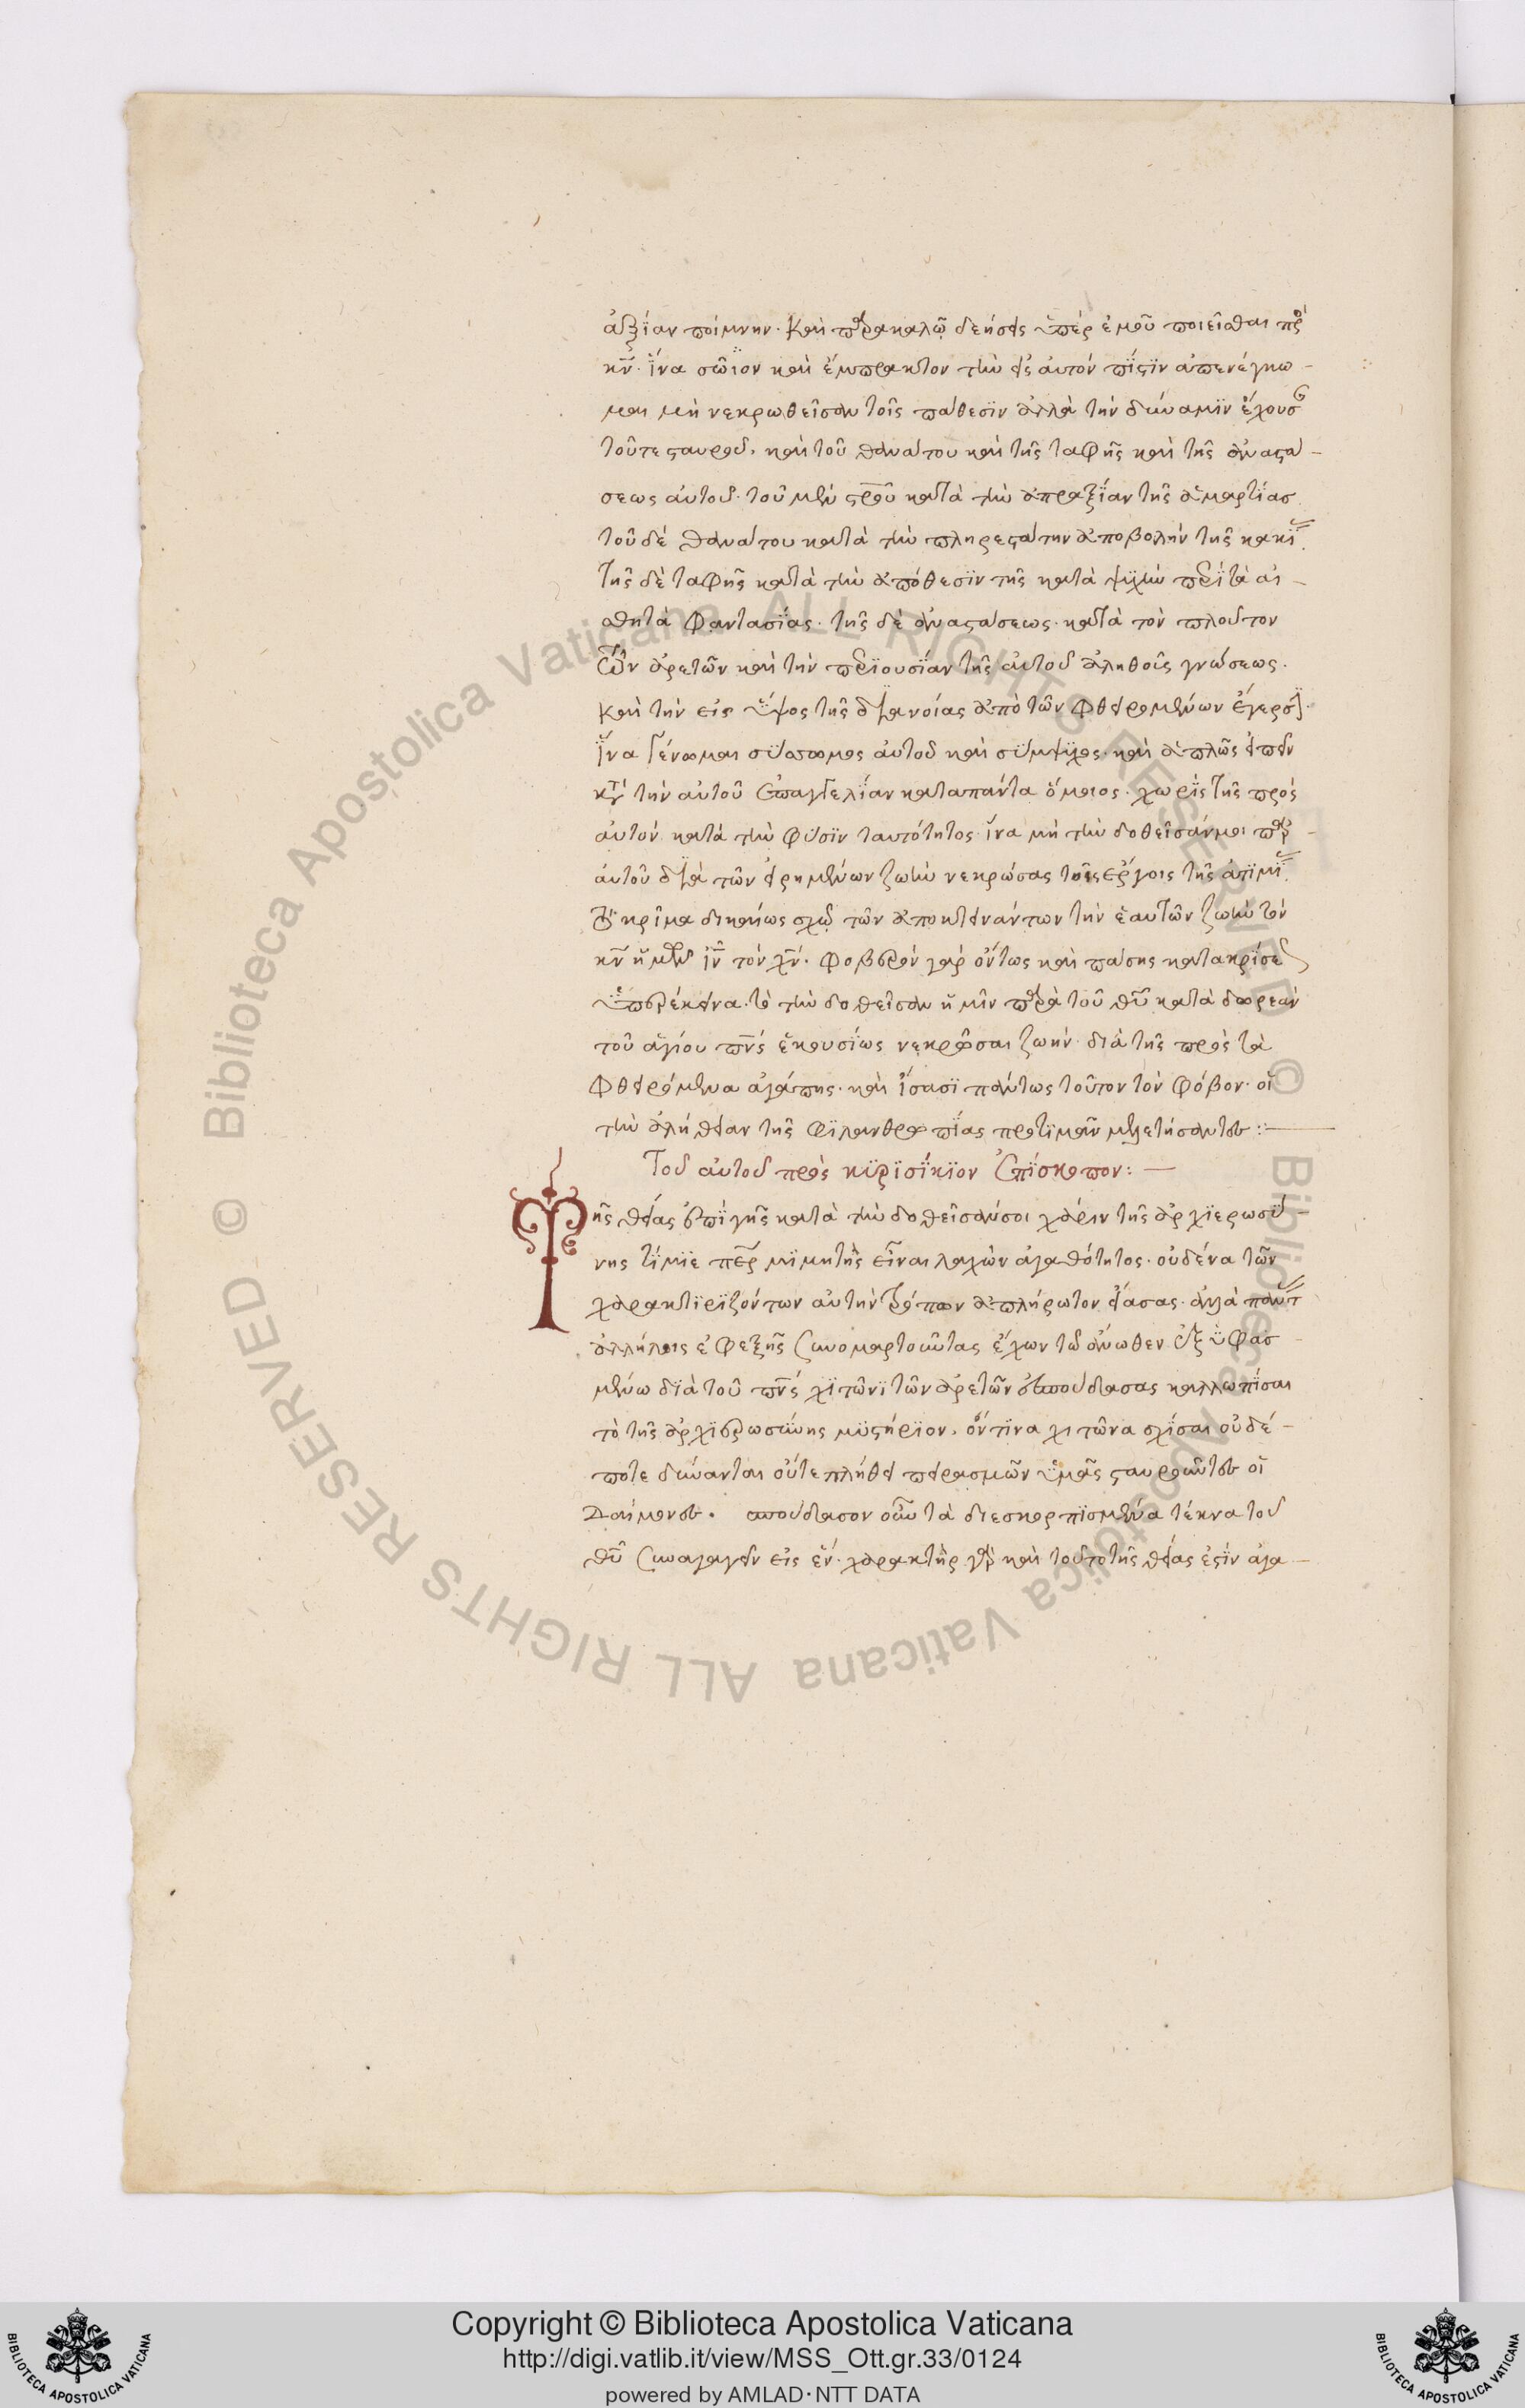 ἀξΐαν ποίμνην· καὶ παρακαλῶ δεήσεις ὑπὲρ ἐμοῦ ποιεῖσθαι πρὸς
κν̅· ἵνα σῶϊον καὶ ἔμπρακτον τὴν εἰς αὐτόν πίςϊν ἀπενέγκω-
μαι μὴ νεκρωθεῖσαν τοῖς πάθεσϊν ἀλλὰ τὴν δύναμϊν ἔχουσ
τοῦτε ςαυροῦ, καὶ τοῦ θανάτου καὶ τῆς ταφῆς καὶ τῆς ἀναςά-
σεως αὐτοῦ· τοῦ μὲν ςρ̅οῦ κατὰ τὴν ἀπραξΐαν τῆς ἁμαρτΐας
τοῦ δέ θανάτου κατὰ τὴν πληρεςάτην ἀποβολήν τῆς κακϊ
τῆς δὲ ταφῆς κατὰ τὴν ἀπόθεσϊν της κατὰ ψϋχὴν περΐ τὰ αι-
σθητὰ φαντασΐας· τῆς δὲ ἀναςάσεως· κατὰ τὸν πλοῦτον
τῶν ἀρετῶν καὶ τὴν περϊουσΐαν τῆς αὐτοῦ ἀληθοῖς γνώσεως.
καὶ τὴν εἰς ὕψος τῆς διανοίας ἀπὸ τῶν φθειρομένων ἔγερσ
ἵνα γένωμαι σϋσσωμος αὐτοῦ καὶ σϋμψϋχος· καὶ ἁπλῶς εἰπεῖν
τὴν αὐτοῦ ἐπαγγελΐαν καταπάντα ὅμοιος· χωρΐς τῆς πρός
αὐτόν κατὰ τὴν φύσϊν ταυτότητος· ἵνα μὴ τὴν δοθεῖσάνμοι παρ-
αὐτοῦ διὰ τῶν εἰρημένων ζωὴν νεκρώσας τοῖς ἔργοις τῆς ἀτϊμϊ
τὸ κρῖμα δικαίως σχῶ τῶν ἀποκτεινάντων τὴν ἑαυτῶν ζωὴν τὸν
κν̅ ἡμῶν ἰν̅ τόν χν̅· φοβερὸν γάρ ὄντως καὶ πάσης κατακρίσε
ὑπερέκεινα· τὸ τὴν δοθεῖσαν ἡμῖν παρὰ τοῦ θυ̅ κατὰ δωρεάν
τοῦ ἁγίου πν̅ς ἑκουσΐως νεκρῶσαι ζωήν· διὰ τῆς πρὸς τὰ
φθειρόμενα ἀγάπης· καὶ ἴσασϊ πάντως τοῦτον τὸν φόβον· οἱ
τὴν ἀλήθειαν τῆς φϊλανθρωπΐας προτϊμᾶν μελετήσαντες :-
Τοῦ αὐτοῦ πρὸς κϋρϊσΐκϊον ἐπίσκοπον: -
Τῆς θείας ἐπΐ γῆς κατὰ τὴν δοθεῖσάνσοι χάριν τῆς ἀρχϊερωσϋ-
νης τΐμϊε περ̅ μϊμητὴς εἶναι λαχὼν ἀγαθότητος· οὐδένα τῶν
χαρακτϊρϊζόντων αὐτὴν τρόπων ἀπλήρωτον εἴασας· ἀλλὰ παντ
ἀλλήλοις ἐφεξῆς συνομαρτοῦντας ἔχων τῶ ἄνωθεν ἐξ ὑφασ
μένω δϊὰ τοῦ πν̅ς χϊτῶνϊ τῶν ἀρετῶν ἐσπούδασας καλλωπΐσαι
τὸ τῆς ἀρχϊερωσύνης μϋςήρϊον, ὅντϊνα χιτῶνα σχΐσαι οὐδέ-
ποτε δύνανται οὔτε πλήθει πειρασμῶν ὑμᾶς ςαυροῦντες οἱ
Δαίμονες. σπούδασον οὖν τὰ διεσκορπϊσμένα τέκνα τοῦ
θυ̅ συναγαγεῖν εἰς ἕν· χαρακτὴρ γὰρ καὶ τοῦτο τῆς θείας ἐςΐν ἀγα-
Copyright © Biblioteca Apostolica Vaticana
http://digi.vatlib.it/view/MSS_Ott.gr.33/0124
powered by AMLAD·NTT DATA
BIBLIOTECA APOSTOLICA VATICANA
BIBLIOTECA APOSTOLICA VATICANA
© Biblioteca Apostolica Vaticana ALL RIGHTS RESERVED
© Biblioteca Apostolica Vaticana ALL RIGHTS RESERVED